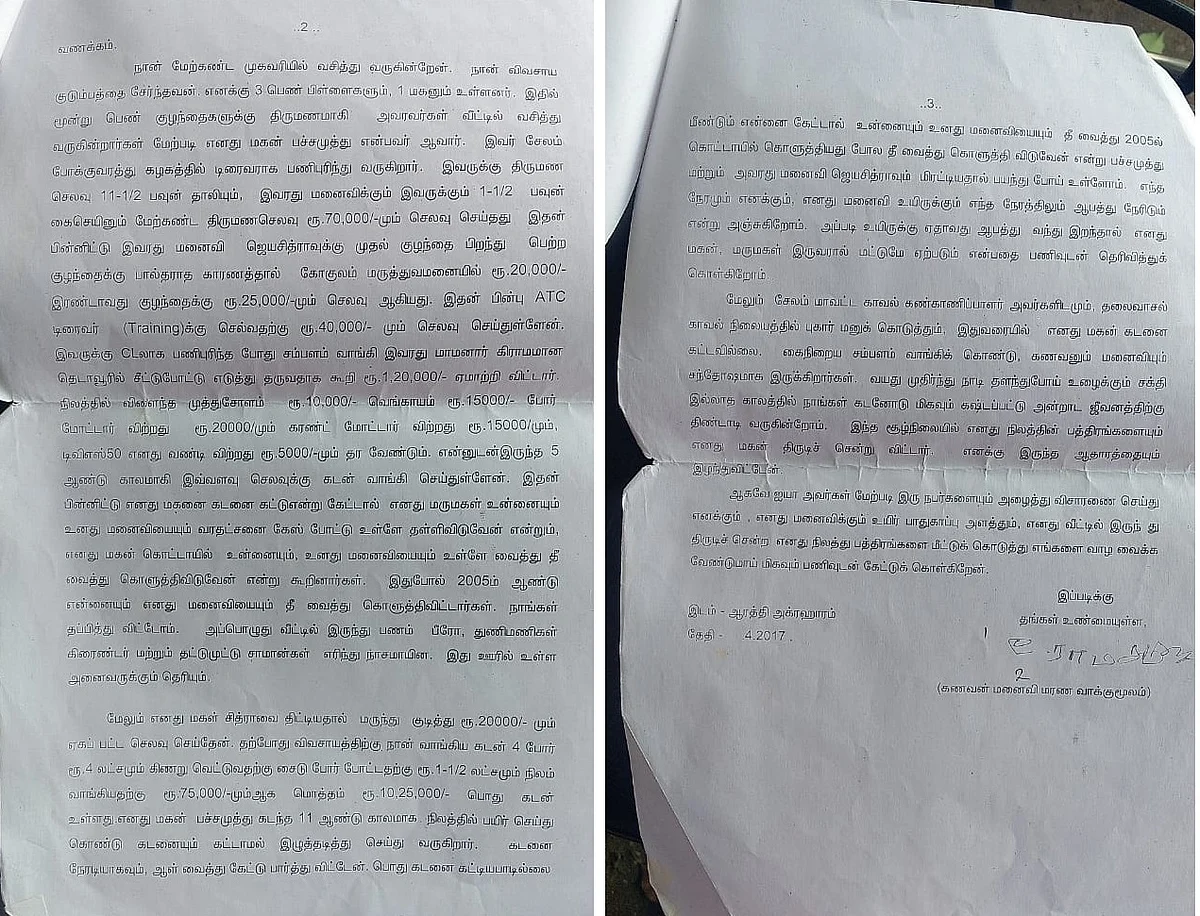 ..2..
வணக்கம்.
நான் மேற்கண்ட முகவரியில் வசித்து வருகின்றேன். நான் விவசாய
குடும்பத்தை சேர்ந்தவன். எனக்கு 3 பெண் பிள்ளைகளும், 1 மகனும் உள்ளனர். இதில்
மூன்று பெண் குழந்தைகளுக்கு திருமணமாகி அவரவர்கள் வீட்டில் வசித்து
வருகின்றார்கள் மேற்படி எனது மகன் பச்சமுத்து என்பவர் ஆவார். இவர் சேலம்
போக்குவரத்து கழகத்தில் டிரைவராக பணிபுரிந்து வருகிறார். இவருக்கு திருமண
செலவு 11-1/2 பவுன் தாலியும், இவரது மனைவிக்கும் இவருக்கும் 1-1/2 பவுன்
கைசெயினும் மேற்கண்ட திருமணசெலவு ரூ.70,000/-மும் செலவு செய்தது இதன்
பின்னிட்டு இவரது மனைவி ஜெயசித்ராவுக்கு முதல் குழந்தை பிறந்து பெற்ற
குழந்தைக்கு பால்தராத காரணத்தால் கோகுலம் மருத்துவமனையில் ரூ.20,000/-
இரண்டாவது குழந்தைக்கு ரூ.25,000/-மும் செலவு ஆகியது. இதன் பின்பு ATC
டிரைவர் (Training)க்கு செல்வதற்கு ரூ.40,000/- மும் செலவு செய்துள்ளேன்.
இவருக்கு CLலாக பணிபுரிந்த போது சம்பளம் வாங்கி இவரது மாமனார் கிராமமான
தெடாவூரில் சீட்டுபோட்டு எடுத்து தருவதாக கூறி ரூ.1,20,000/- ஏமாற்றி விட்டார்.
நிலத்தில் விளைந்த முத்துசோளம் ரூ.10,000/- வெங்காயம் ரூ.15000/- போர்
மோட்டார் விற்றது ரூ.20000/மும் கரண்ட் மோட்டார் விற்றது ரூ.15000/மும்,
டிவிஎஸ்50 எனது வண்டி விற்றது ரூ.5000/-மும் தர வேண்டும். என்னுடன்இருந்த 5
ஆண்டு காலமாகி இவ்வளவு செலவுக்கு கடன் வாங்கி செய்துள்ளேன். இதன்
பின்னிட்டு எனது மகனை கடனை கட்டுஎன்று கேட்டால் எனது மருமகள் உன்னையும்
உனது மனைவியையும் வரதட்சனை கேஸ் போட்டு உள்ளே தள்ளிவிடுவேன் என்றும்,
எனது மகன் கொட்டாயில் உன்னையும், உனது மனைவியையும் உள்ளே வைத்து தீ
வைத்து கொளுத்திவிடுவேன் என்று கூறினார்கள். இதுபோல் 2005ம் ஆண்டு
என்னையும் எனது மனைவியையும் தீ வைத்து கொளுத்திவிட்டார்கள். நாங்கள்
தப்பித்து விட்டோம். அப்பொழுது வீட்டில் இருந்து பணம் பீரோ, துணிமணிகள்
கிரைண்டர் மற்றும் தட்டுமுட்டு சாமான்கள் எரிந்து நாசமாயின. இது ஊரில் உள்ள
அனைவருக்கும் தெரியும்.
மேலும் எனது மகள் சித்ராவை திட்டியதால் மருந்து குடித்து ரூ.20000/- மும்
ஏகப் பட்ட செலவு செய்தேன். தற்போது விவசாயத்திற்கு நான் வாங்கிய கடன் 4 போர்
ரூ.4 லட்சமும் கிணறு வெட்டுவதற்கு சைடு போர் போட்டதற்கு ரூ.1-1/2 லட்சமும் நிலம்
வாங்கியதற்கு ரூ.75,000/-மும்ஆக மொத்தம் ரூ.10,25,000/- பொது கடன்
உள்ளது.எனது மகன் பச்சமுத்து கடந்த 11 ஆண்டு காலமாக நிலத்தில் பயிர் செய்து
கொண்டு கடனையும் கட்டாமல் இழுத்தடித்து செய்து வருகிறார். கடனை
நேரடியாகவும், ஆள் வைத்து கேட்டு பார்த்து விட்டேன். பொது கடனை கட்டியபாடில்லை
..3..
மீண்டும் என்னை கேட்டால் உன்னையும் உனது மனைவியையும் தீ வைத்து 2005ல்
கொட்டாயில் கொளுத்தியது போல தீ வைத்து கொளுத்தி விடுவேன் என்று பச்சமுத்து
மற்றும் அவரது மனைவி ஜெயசித்ராவும் மிரட்டியதால் பயந்து போய் உள்ளோம். எந்த
நேரமும் எனக்கும், எனது மனைவி உயிருக்கும் எந்த நேரத்திலும் ஆபத்து நேரிடும்
என்று அஞ்சுகிறோம். அப்படி உயிருக்கு ஏதாவது ஆபத்து வந்து இறந்தால் எனது
மகன், மருமகள் இருவரால் மட்டுமே ஏற்படும் என்பதை பணிவுடன் தெரிவித்துக்
கொள்கிறோம்.
மேலும் சேலம் மாவட்ட காவல் கண்காணிப்பாளர் அவர்களிடமும், தலைவாசல்
காவல் நிலையத்தில் புகார் மனுக் கொடுத்தும், இதுவரையில் எனது மகன் கடனை
கட்டவில்லை. கைநிறைய சம்பளம் வாங்கிக் கொண்டு, கணவனும் மனைவியும்
சந்தோஷமாக இருக்கிறார்கள். வயது முதிர்ந்து நாடி தளந்துபோய் உழைக்கும் சக்தி
இல்லாத காலத்தில் நாங்கள் கடனோடு மிகவும் கஷ்டப்பட்டு அன்றாட ஜீவனத்திற்கு
திண்டாடி வருகின்றோம். இந்த சூழ்நிலையில் எனது நிலத்தின் பத்திரங்களையும்
எனது மகன் திருடிச் சென்று விட்டார். எனக்கு இருந்த ஆகாரத்தையும்
இழந்துவிட்டேன்.
ஆகவே ஐயா அவர்கள் மேற்படி இரு நபர்களையும் அழைத்து விசாரணை செய்து
எனக்கும் , எனது மனைவிக்கும் உயிர் பாதுகாப்பு அளத்தும், எனது வீட்டில் இருந் து
திருடிச் சென்ற எனது நிலத்து பத்திரங்களை மீட்டுக் கொடுத்து எங்களை வாழ வைக்க
வேண்டுமாய் மிகவும் பணிவுடன் கேட்டுக் கொள்கிறேன்.
இப்படிக்கு
இடம் - ஆரத்தி அக்ரஹாரம்
தங்கள் உண்மையுள்ள,
தேதி - 4.2017 .
1
2
(கணவன் மனைவி மரண வாக்குமூலம்)